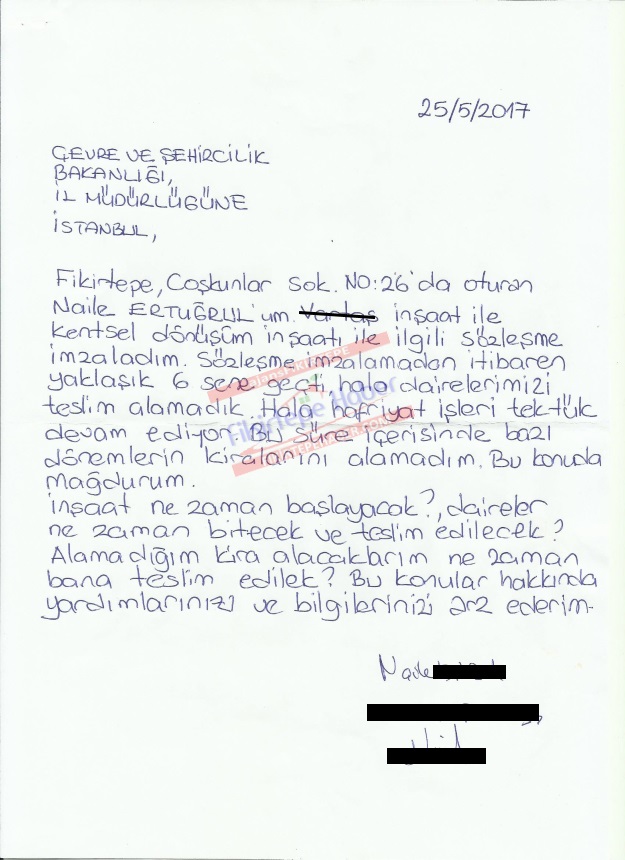 25/5/2017
ÇEVRE VE ŞEHİRCİLİK
BAKANLIĞI,
İL MÜDÜRLÜĞÜNE
İSTANBUL,
Fikirtepe, Coşkunlar Sok. NO:26'da oturan
Naile ERTUĞRUL'um. inşaat ile
kentsel dönüşüm inşaatı ile ilgili sözleşme
imzaladım. Sözleşme imzalamadan itibaren
yaklaşık 6 sene geçti, hala dairelerimizi
teslim alamadık. Hala hafriyat işleri tektük
devam ediyor. Bu süre içerisinde bazı
dönemlerin kiralarını alamadım. Bu konuda
mağdurum.
inşaat ne zaman başlayacak?, daireler
ne zaman bitecek ve teslim edilecek?
Alamadığım kira alacaklarım ne zaman
bana teslim edilek? Bu konular hakkında
yardımlarınızı ve bilgilerinizi arz ederim.
Fikirtepe Haber